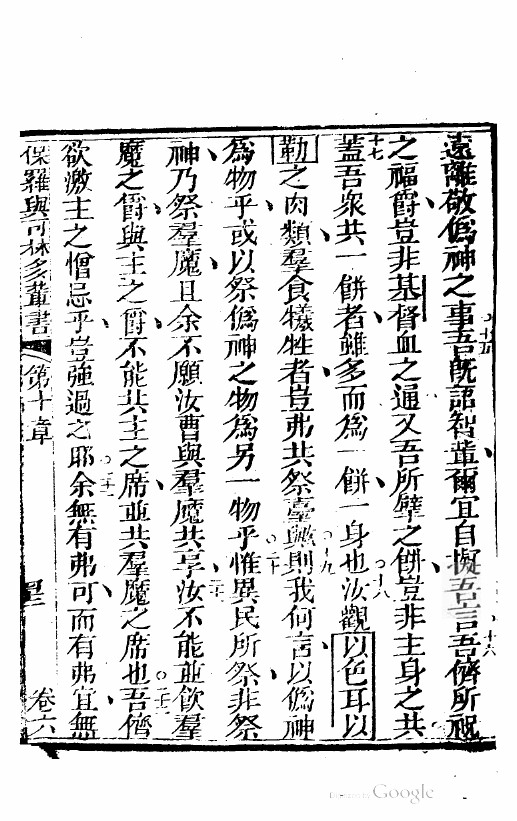 遠離敬偽神之事十五吾既語智輩爾宜自擬吾言十六吾儕所祝
之福爵豈非基督血之通又吾所擘之餅豈非主身之共
十七蓋吾眾共一餅者雖多而為一餅一身也十八汝觀以色耳以
勒之肉類羣食犧牲者豈弗共祭臺與十九則我何言以偽神
為物乎或以祭偽神之物為另一物乎二十惟異民所祭非祭
神乃祭羣魔且余不願汝曹與羣魔共享二一汝不能並飲羣
魔之爵與主之爵不能共主之席並共羣魔之席也二二吾儕
欲激主之憎忌乎豈強過之耶二三余無有弗可而有弗宜無
保羅與可林多輩書 第十章 卷六
Digitized by Google